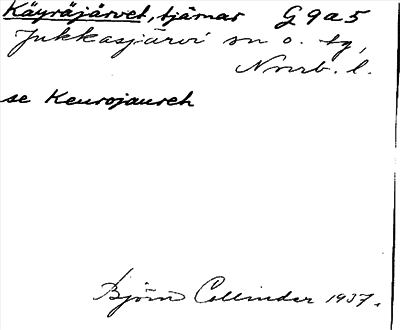 Käyräjärvet, tjärnar G9a5
Jukkasjärvi sn o. tg,
Nrrb. l.
se Keurojaureh
Björn Collinder 1937.